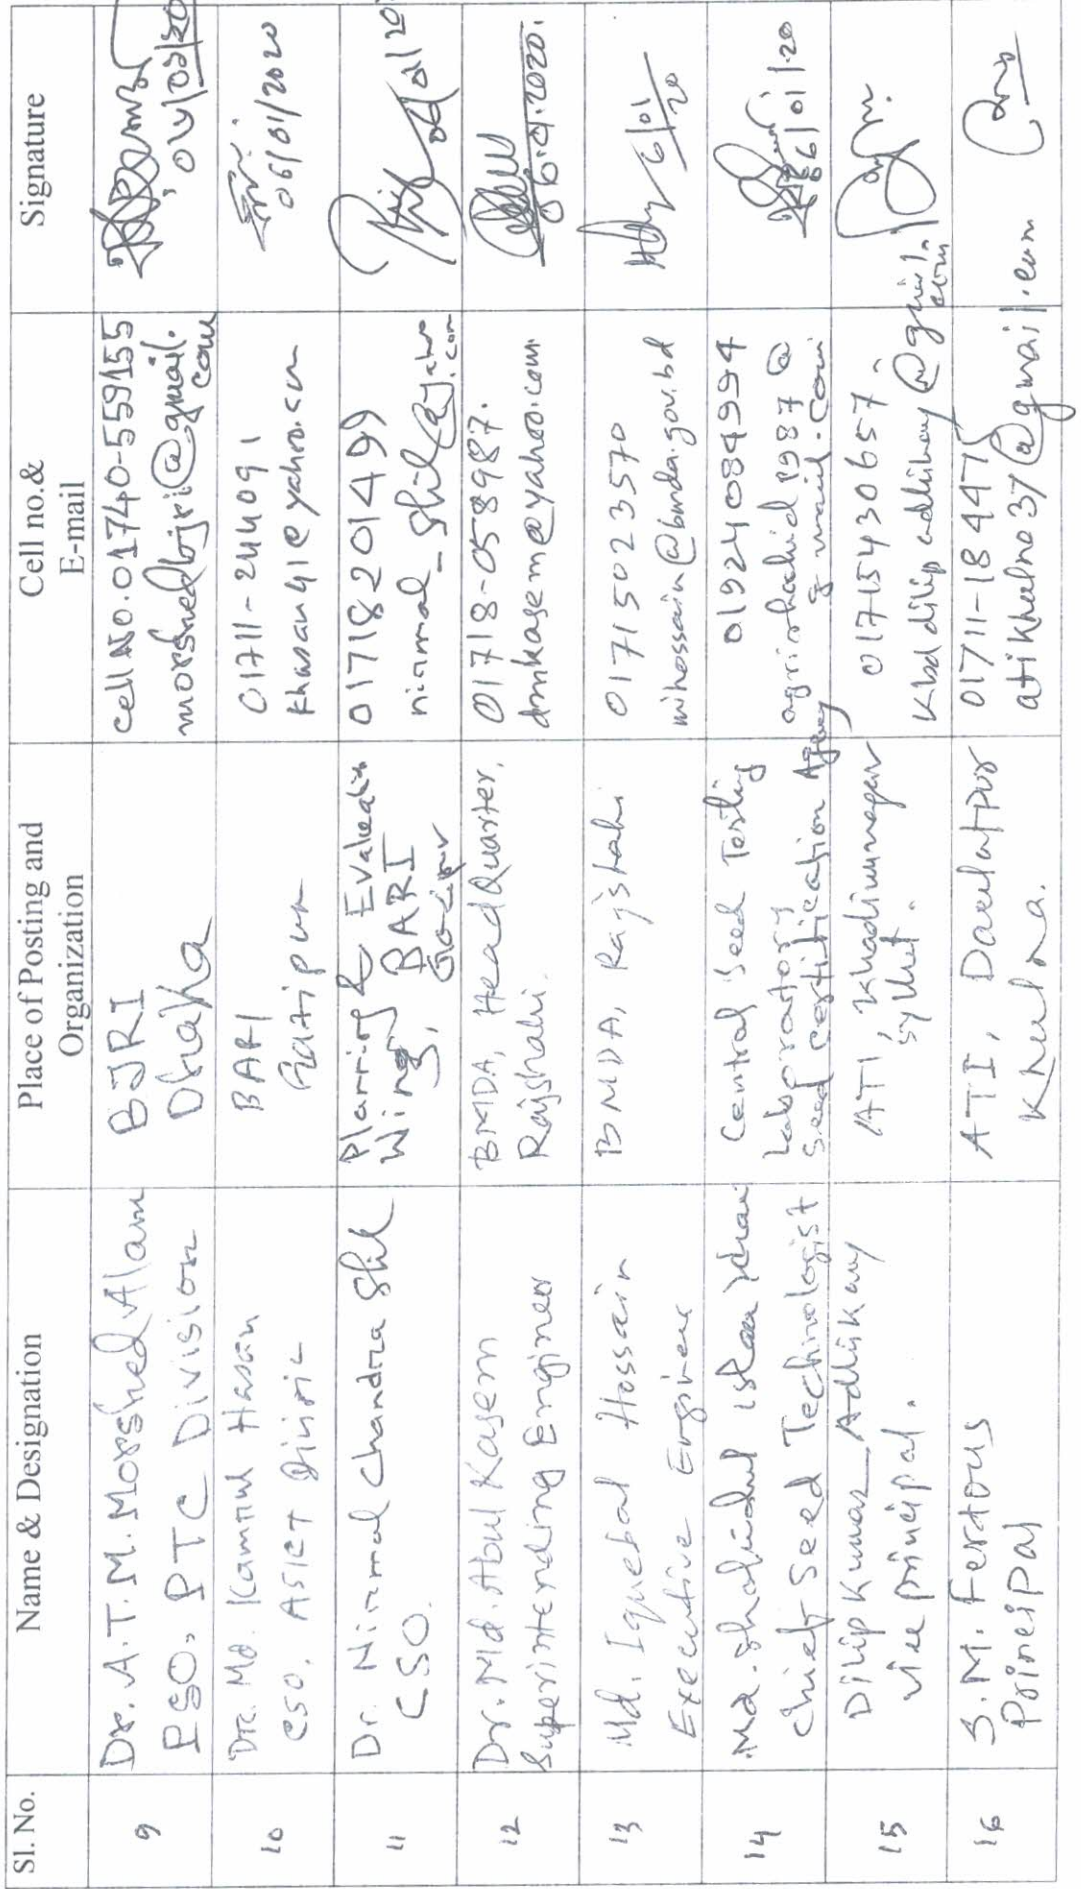 Sl. No.
Name & Designation
Place of Posting and
Organization
Cell no.&
E-mail
Signature
9
Dr. A.T.M. Morshed Alam
PSO, PTC Division
BJRI
Dhaka
cell No. 01740-559155
morshedbjri@gmail.
com
10
Dr. Md. Kamrul Hasan
CSO, ASICT Division
BARI
Gazipur
01711-244091
khasan41@yahoo.com
06/01/2020
11
Dr. Nirmal Chandra Shil
CSO.
Planning & Evaluation
Wing, BARI
Gazipur
01718201499
nirmal_shil@yahoo
.com
12
Dr. Md. Abul Kasem
Superintending Engineer
BMDA, Head Quarter,
Rajshahi.
01718-058987.
dmkasem@yahoo.com.
06.01.2020.
13
Md. Iquebal Hossain
Executive Engineer
BMDA, Rajshahi
01715023570
mihossain@bmda.gov.bd
6/01/20
14
Md. Shahidul Islam Khan
Chief Seed Technologist
Central Seed Testing
Laboratory
Seed Certification Agency
01924084994
agrishahid1987@
gmail.com
06/01/20
15
Dilip Kumar Adhikary
vice principal.
ATI, Khadimnagar
sylhet.
01715430657
kbd dilip adhikary@gmail.
com
16
S.M. Ferdous
Principal
ATI, Daulatpur
Khulna.
01711-184475
atikhulna37@gmail.com